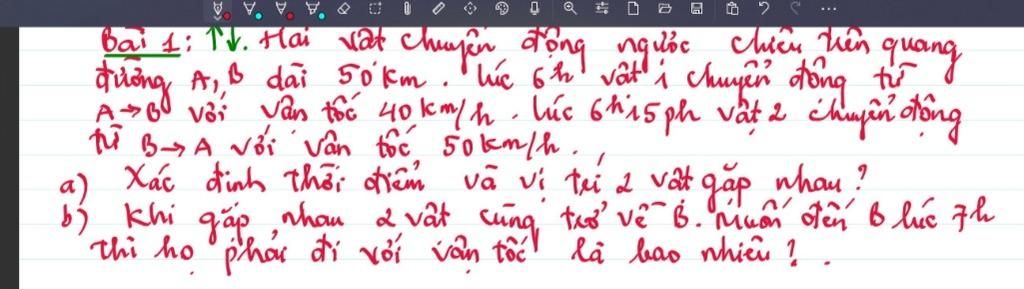 Bài 1: ↑↓. Hai vật chuyển động ngược chiều trên quang
đường A, B dài 50 km. lúc 6h vật 1 chuyển động từ
A → B với vân tốc 40 km/h. lúc 6h15ph vật 2 chuyển động
từ B → A với vân tốc 50 km/h.
a) Xác định thời điểm và vị trí 2 vật gặp nhau?
b) Khi gặp nhau 2 vật cùng trở về B. Muốn đến B lúc 7h
thì họ phải đi với vân tốc là bao nhiêu?.